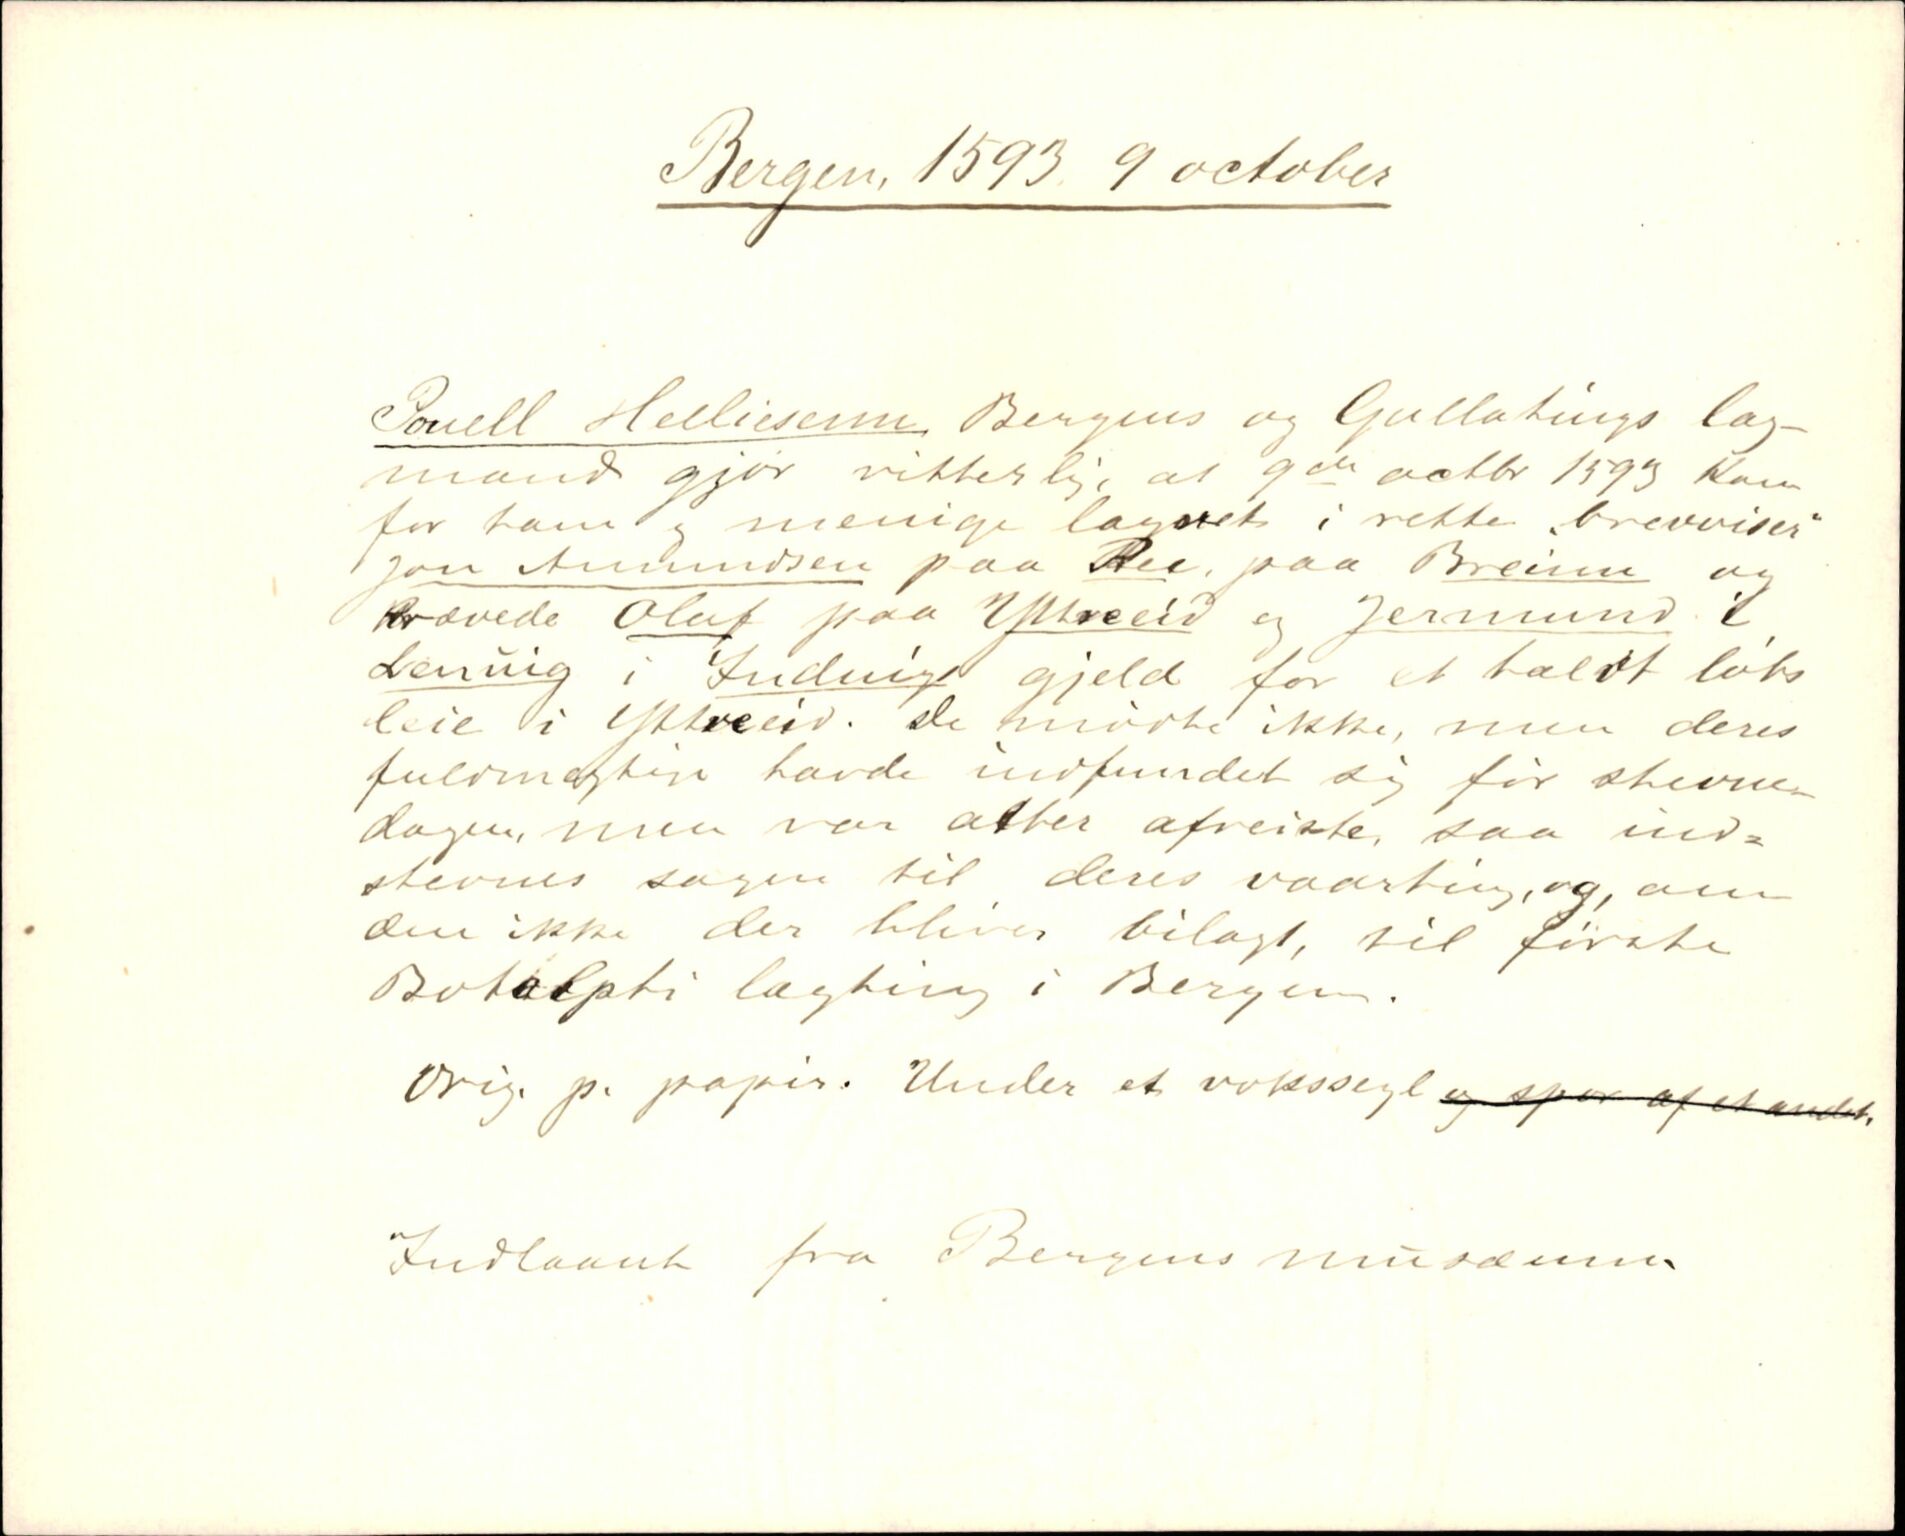 Bergen, 1593. 9 october
Pouell Helliesenn, Bergens og Gullatings lag-
mand gjör vitterlig, at 9de octbr 1593 kom
for ham og menige lagret i rette "brevviser"
Jon Amundsen paa Ree, paa Breinn og
krævede Oluf paa Ystreeid og Jermund i
i gjeld for et halvt löbs
leie i Ystreeid. De mödte ikke, men deres
fuldmegtige havde indfundet sig för stevne-
dagen, men var atter afreiste, saa ind=
stevnes sagen til deres vaarting, og, om
den ikke der bliver bilagt, til förste
Botolphi lagting i Bergen.
Orig. p. papir. Under et vokssegl og spor af et andet.
Indlaant fra Bergens musæum.